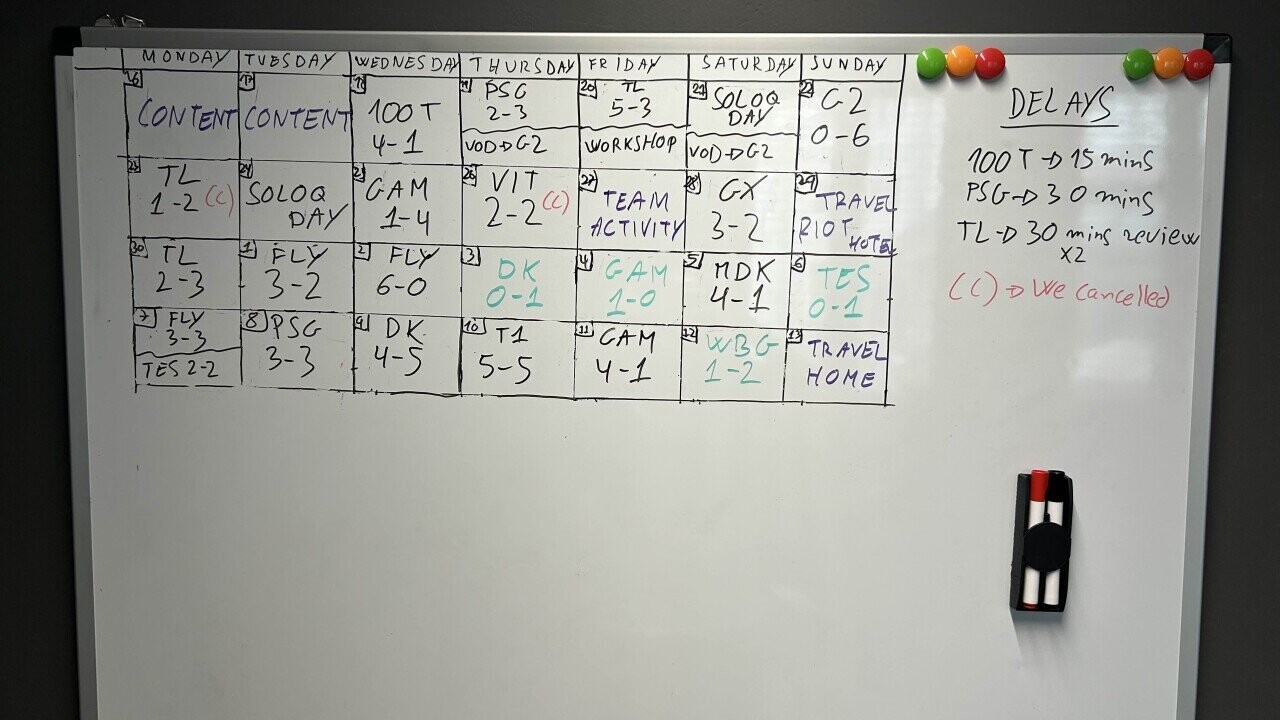 MONDAY TUESDAY WEDNESDAY THURSDAY FRIDAY SATURDAY SUNDAY
16 CONTENT
17 CONTENT
18 100T
4-1
19 PSG
2-3
VOD→G2
20 TL
5-3
WORKSHOP
21 SOLOQ
DAY
VOD→G2
22 G2
0-6
23 TL
1-2 (C)
24 SOLOQ
DAY
25 GAM
1-4
26 VIT
2-2 (C)
27 TEAM
ACTIVITY
28 GX
3-2
29 TRAVEL
RIOT HOTEL
30 TL
2-3
1 FLY
3-2
2 FLY
6-0
3 DK
0-1
4 GAM
1-0
5 MDK
4-1
6 TES
0-1
7 FLY
3-3
TES 2-2
8 PSG
3-3
9 DK
4-5
10 T1
5-5
11 GAM
4-1
12 WBG
1-2
13 TRAVEL
HOME
DELAYS
100T→15 mins
PSG→30 mins
TL→30 mins review
x2
(C)→We cancelled